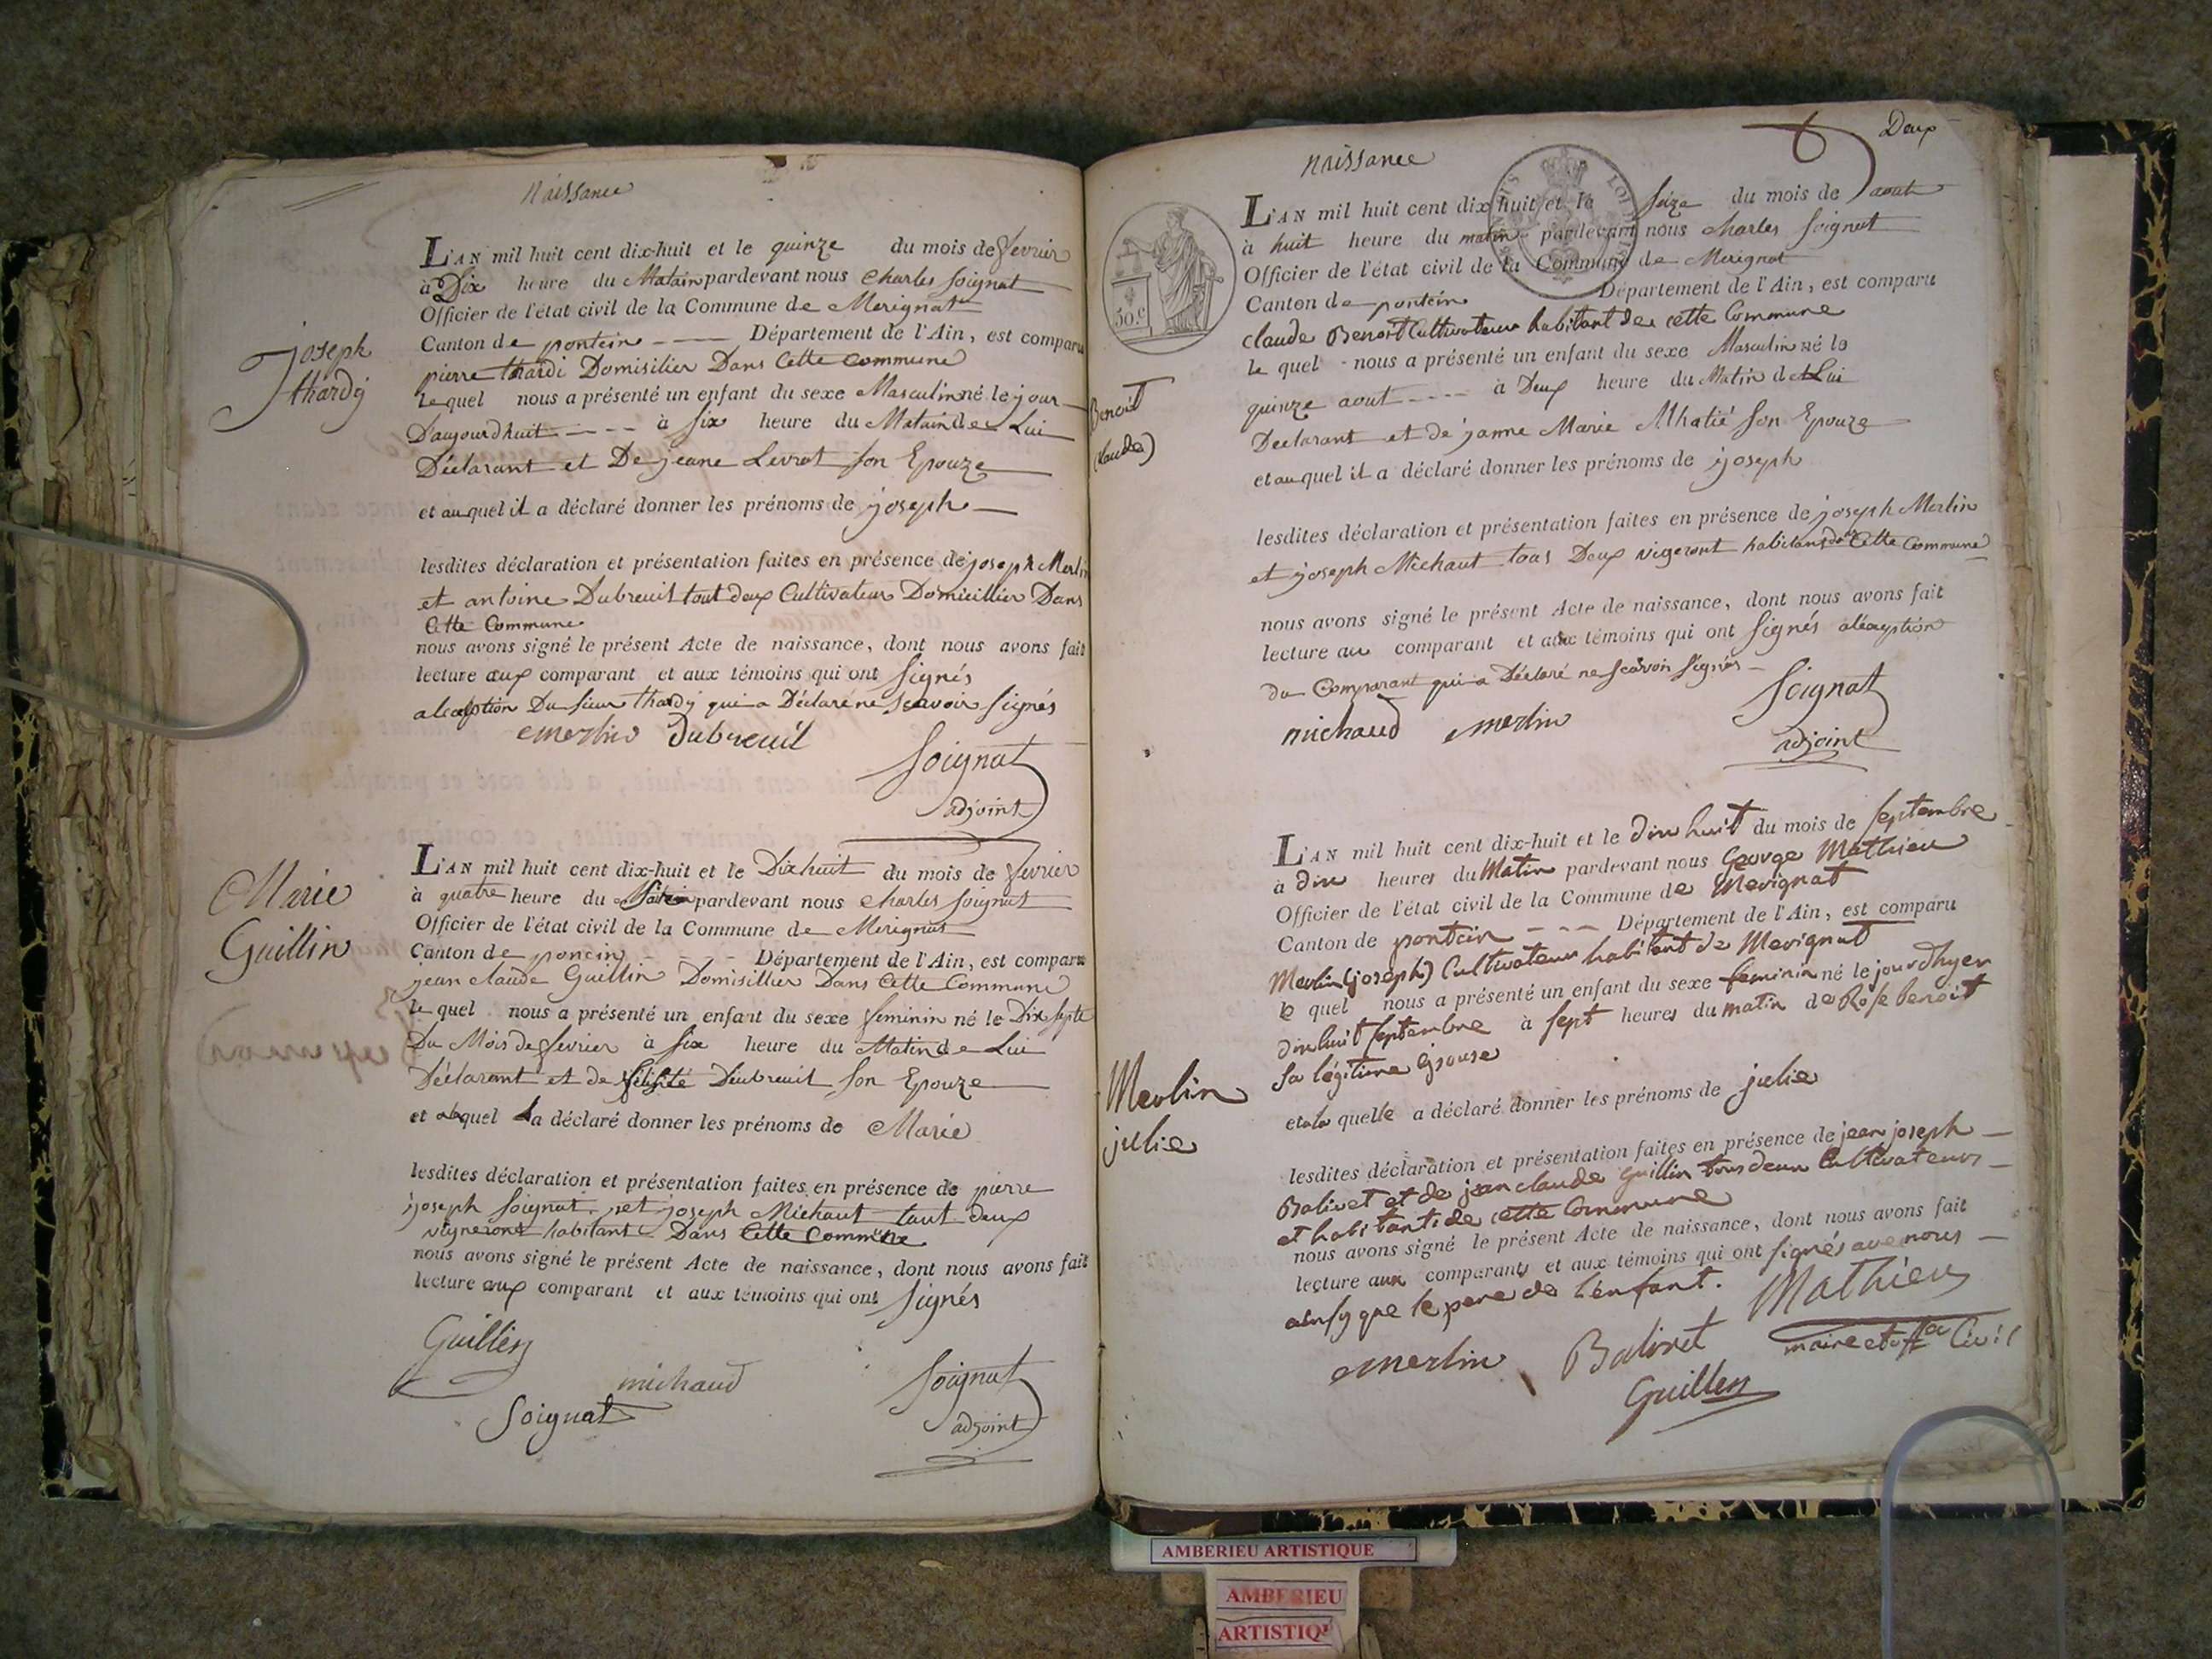 Naissance
Joseph
thardy
L'AN mil huit cent dix-huit et le quinze du mois de fevrier
à Dix heure du Matain pardevant nous Charles Soignat
Officier de l'état civil de la Commune de Merignat
Canton de pontein Département de l'Ain, est comparu
pierre thardi Domisilier Dans Cette commune
lequel nous a présenté un enfant du sexe Masculin né le jour
D'aujourdhuit à six heure du Matain de Lui
Déclarant et De jeane Levrat son Epouze
et auquel il a déclaré donner les prénoms de joseph
lesdites déclaration et présentation faites en présence de joseph Merlin
et antoine Dubreuil tout deux Cultivateur Domicillier Dans
Cette Commune
nous avons signé le présent Acte de naissance, dont nous avons fait
lecture aux comparant et aux témoins qui ont signés
Du sieur thardy qui a Déclaré ne scavoir signés
merlin dubreuil
Soignat
adjoint
Marie
Guillin
L'AN mil huit cent dix-huit et le Dixhuit du mois de fevrier
à quatre heure du pardevant nous Charles Soignat
Officier de l'état civil de la Commune de Merignat
Canton de poncin Département de l'Ain, est comparu
jean claude Guillin Domisillier Dans Cette Commune
le quel nous a présenté un enfant du sexe feminin né le Dix septe
Du Mois de fevrier à six heure du Matin de Lui
Déclarant et de félisité Deubreuil son Epouze
et quel a déclaré donner les prénoms de Marie
lesdites déclaration et présentation faites en présence de pierre
joseph Soignat et joseph Michaut tout deux
vignerons habitant Dans Cette Commune
nous avons signé le présent Acte de naissance, dont nous avons fait
lecture aux comparant et aux témoins qui ont signés
Guillin
michaud
Soignat
Soignat
adjoint
Deux
naissance
50.c
Benoit
(Claude)
L'AN mil huit cent dix-huit et le seize du mois de aout
à huit heure du matin pardevant nous Charles Soignat
Officier de l'état civil de la Commune de Merignat
Canton de pontein Département de l'Ain, est comparu
claude Benoit Cultivateur habitant de cette Commune
le quel nous a présenté un enfant du sexe Masculin né le
quinze aout à Deux heure du Matin de Lui
Declarant et de janne Marie son Epouze
et auquel il a déclaré donner les prénoms de joseph
lesdites déclaration et présentation faites en présence de joseph Merlin
et joseph Michaut tous Deux vigeront habitans de Cette Commune
nous avons signé le présent Acte de naissance, dont nous avons fait
lecture au comparant et aux témoins qui ont signés
du Comparant qui a Déclaré ne scavoir signés
michaud merlin
Soignat
adjoint
Merlin
julie
L'AN mil huit cent dix-huit et le dix huit du mois de septembre
à dix heures du Matin pardevant nous George Mathieu
Officier de l'état civil de la Commune de Merignat
Canton de pontcin Département de l'Ain, est comparu
Merlin (joseph) Cultivateur habitant de Merignat
le quel nous a présenté un enfant du sexe feminin né le jour dhyer
dix huit septembre à sept heures du matin de Rose benoit
sa légitime épouse
et a la quelle a déclaré donner les prénoms de julie
lesdites déclaration et présentation faites en présence de jean joseph
Balivet et de jean claude guillin tous deux Cultivateurs
et habitants de cette Commune
nous avons signé le présent Acte de naissance, dont nous avons fait
lecture aux comparants et aux témoins qui ont signés avec nous
ainsy que le pere de l'enfant.
merlin Balivet Mathieu
maire et off.er Civil
Guillin
AMBERIEU ARTISTIQUE
AMBERIEU
ARTISTIQU